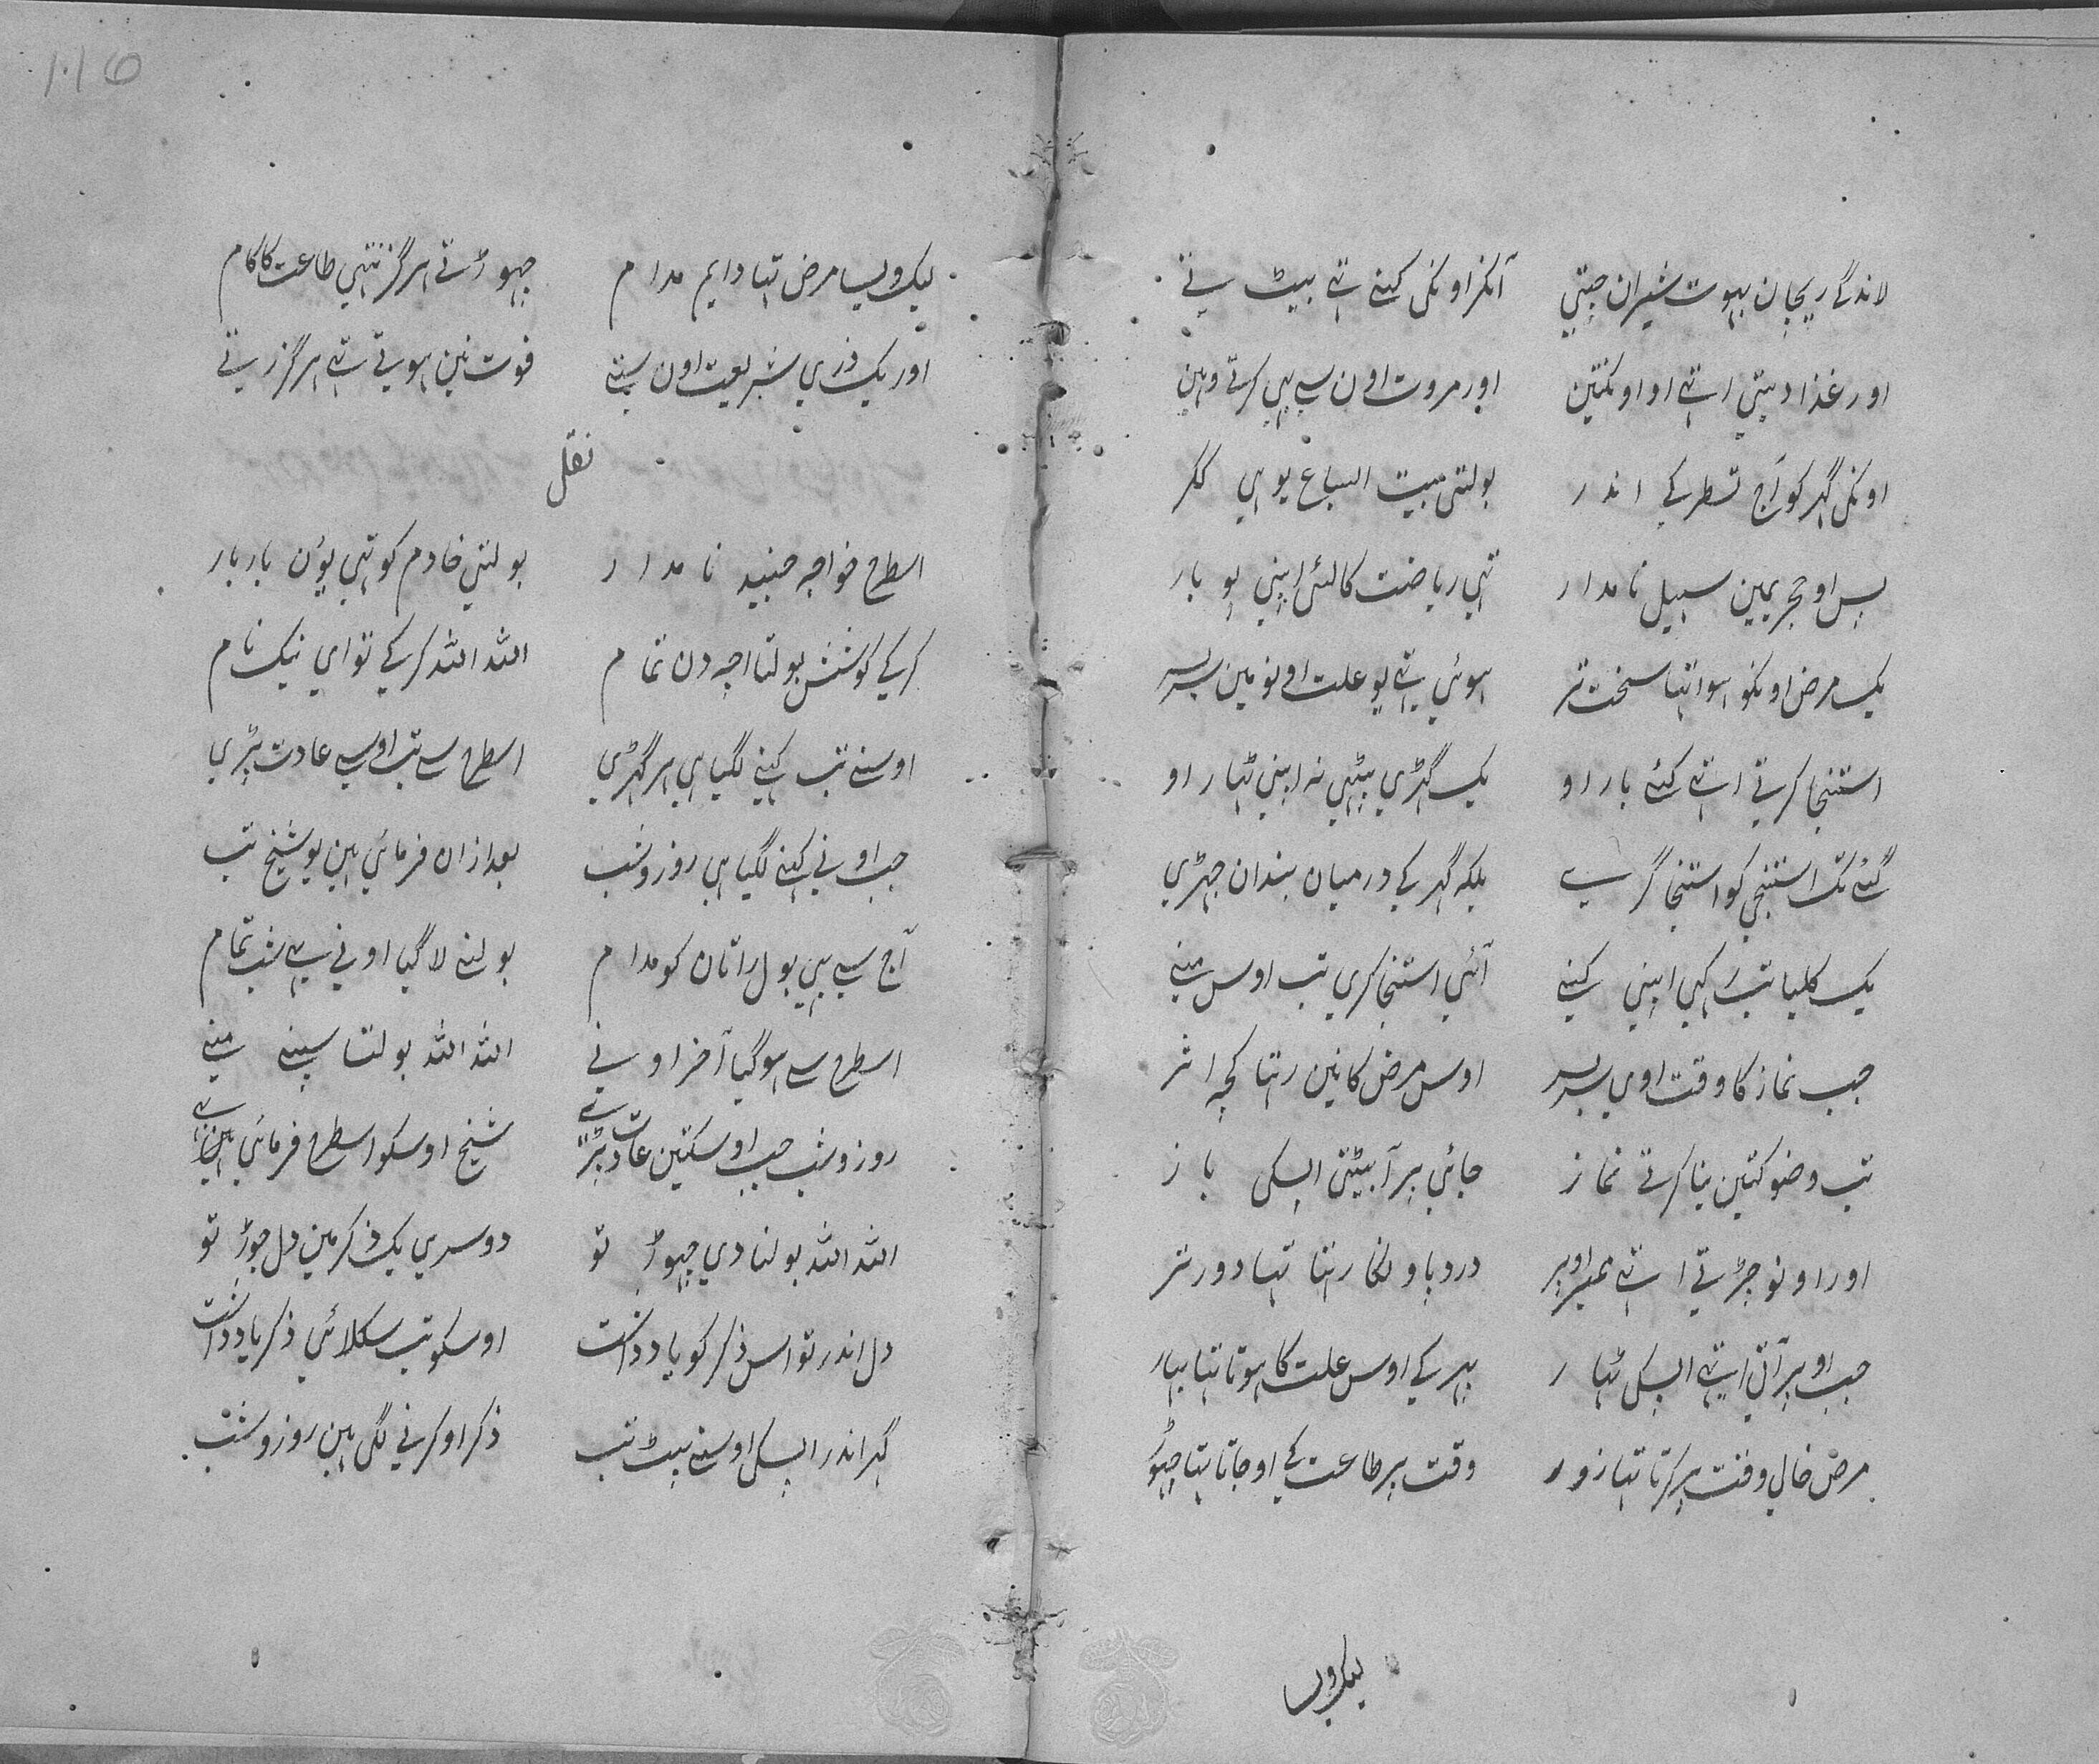 لاندگے ریچان بہوت شیران چیتی آنکر اونکی کنے تھے بیٹ تے
اور غذا دیتی اتھے او اونکتین اور مروت اون سے بھی کرتے وہین
اونکی گھر کو آج تستر کے اندر بولتی بیت السباع یو ہی ککر
پس او ہجر یمین سہیل نامدار تھی ریاضت کا لئی اپنی پو بار
یک مرض اونکو ہوا تھا سخت تر ہوئی تھے یو علت اونو مین سربسر
استنجا کرتے اتھے کئے بار او یک گھڑی بیٹھی نہ اپنی ٹھار او
بلکہ گھر کے درمیان بندان جھڑی
یک کلیا تب رکہی اپنی کنے آئی استنجا کری تب اوس منے
جب نماز کا وقت اوی سربسر اوس مرض کا نین رہتا کچہ اثر
تب وضو کتین بنا کرتے نماز جائی پر آ بیٹتی اپسکی باز
اور اونو چڑتے اتھے ممبر اوپر درد باولکا رہتا تھا دور تر
جب اوپر آتی اتھے اپسکی ٹھار پھر کے اوس علت کا ہوتا تھا بہار
مرض خالی وقت پر کرتا تھا زور وقت پر طاعت کے او جاتا تھا چھوڑ
لیک ویسا
116
لیک ویسا مرض تھا دایم مدام چھوڑتے ہرگز نتھی طاعت کا کام
اور یک ذری شریعت اون ستے فوت نین ہوتے تھے ہرگز رتے
نقل
اسطرح خواجہ جنید نامدار بولتی خادم کو تھی یون بار بار
کرکے کوشش بولتا اچہ دن تمام اللہ اللہ کرکے تو ای نیک نام
اوسنے تب کہنے لگیا ہی ہر گھڑی اسطرح سے تب اوسے عادت پڑی
جب اونے کہنے لگیا ہی روز و شب بعد ازان فرمائی ہین یو شیخ تب
آج سے بھی بول راتان کو مدام بولنے لاگیا اونے سے شب تمام
اسطرح سے ہو گیا آخر اونے اللہ اللہ بولتا سپنے منے
روز و شب جب اوسکتین عادت پڑے شیخ اوسکو اسطرح فرمائی ہین
اللہ اللہ بولنا دی چھوڑ تو دوسری یک ذکر مین دل جوڑ تو
دل اندر تو اس ذکر کو یادداشت اوسکو تب سکلائی ذکر یادداشت
گھر اندر اپسکی اوسنے بیٹ تب ذکر او کرنے لگی ہین روز و شب